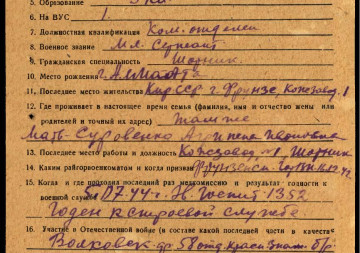 5. Образование
6. На ВУС 1.
7. Должностная квалификация Ком. отделен
8. Военное звание Мл. Сержант
9. Гражданская специальность Шорник
10. Место рождения г. АлмаАта
11. Последнее место жительства Кир ССР г. Фрунзе Кожзавод 1
12. Где проживает в настоящее время семья (фамилия, имя и отчество жены или
родителей и точный их адрес) там же
Мать-Суровенко
13. Последнее место работы и должность Кожзавод №1 Шорник
14. Каким райгорвоенкоматом и когда призван Фрунзенск.
15. Когда и где проходил последний раз медкомиссию и результат годности к
военной службе 5.07.44 г. Госпит 1352
Годен к строевой службе.
16. Участие в Отечественной войне (в составе какой последней части и в качестве
58 отд. Красн Знам. бр.